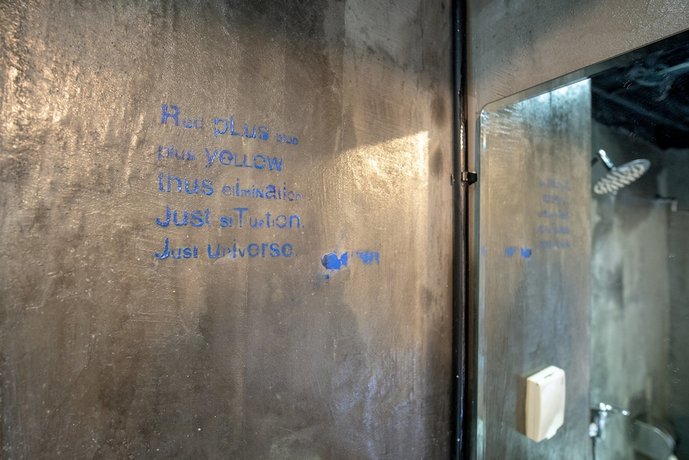 Red pLus blue
plus YELLOW
thus elimination.
Just siTuation.
Just universe.